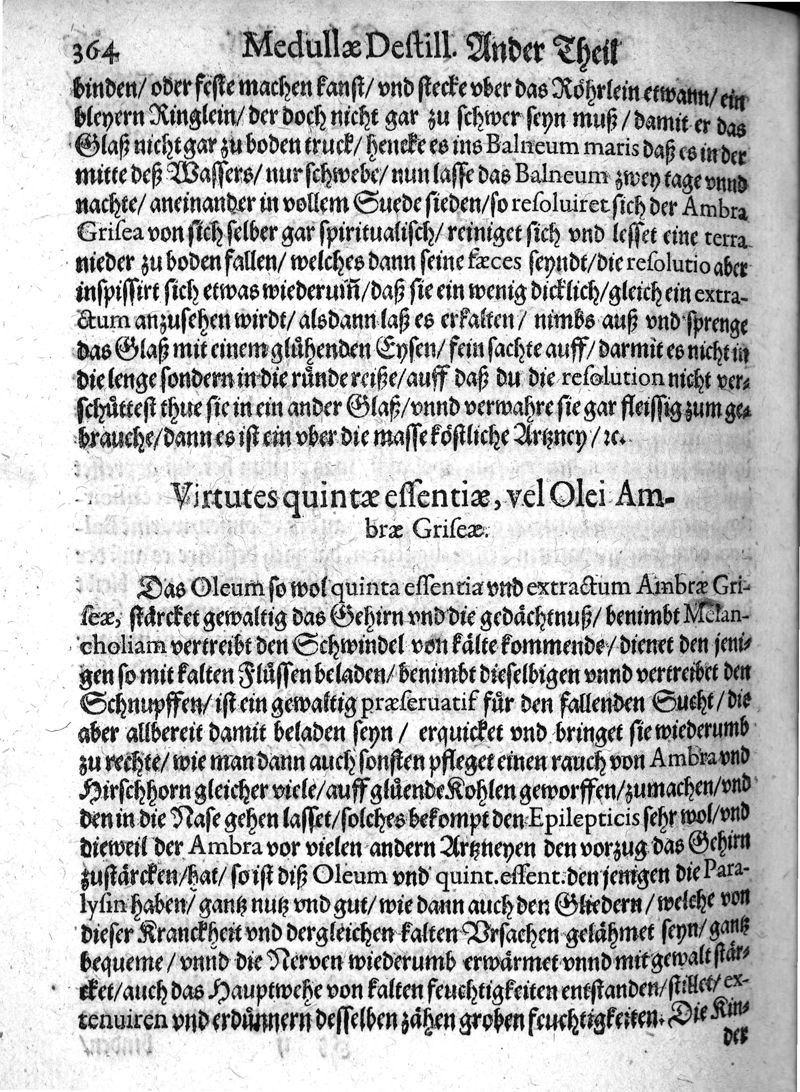 364 Medullæ Destill. Ander Theil
binden/ oder feste machen kanst/ vnd stecke vber das Röhrlein etwann/ ein
bleyern Ringlein/ der doch nicht gar zu schwer seyn muß/ damit er das
Glaß nicht gar zu boden truck/ hencke es ins Balneum maris daß es in der
mitte deß Wassers/ nur schwebe/ nun lasse das Balneum zwey tage vnnd
nachte/ aneinander in vollem Suede sieden/ so resoluiret sich der Ambra
Grisea von sich selber gar spiritualisch/ reiniget sich vnd lesset eine terra
nieder zu boden fallen/ welches dann seine fæces seyndt/ die resolutio aber
inspissirt sich etwas wiederum̃/ daß sie ein wenig dicklich/ gleich ein extra-
ctum anzusehen wirdt/ alsdann laß es erkalten/ nimbs auß vnd sprenge
das Glaß mit einem glühenden Eysen/ fein sachte auff/ darmit es nicht in
die lenge sondern in die ründe reiße/ auff daß du die resolution nicht ver-
schüttest thue sie in ein ander Glaß/ vnnd verwahre sie gar fleissig zum ge-
brauche/ dann es ist ein vber die masse köstliche Artzney/ ꝛc.
Virtutes quintæ essentiæ, vel Olei Am-
bræ Griseæ.
Das Oleum so wol quinta essentia vnd extractum Ambræ Gri-
seæ, stärcket gewaltig das Gehirn vnd die gedächtnuß/ benimbt Melan-
choliam vertreibt den Schwindel von kälte kommende/ dienet den jeni-
gen so mit kalten Flüssen beladen/ benimbt dieselbigen vnnd vertreibet den
Schnupffen/ ist ein gewaltig præseruatif für den fallenden Sucht/ die
aber allbereit damit beladen seyn/ erquicket vnd bringet sie wiederumb
zu rechte/ wie man dann auch sonsten pfleget einen rauch von Ambra vnd
Hirschhorn gleicher viele/ auff glüende Kohlen geworffen/ zumachen/ vnd
den in die Nase gehen lasset/ solches bekompt den Epilepticis sehr wol/ vnd
dieweil der Ambra vor vielen andern Artzneyen den vorzug das Gehirn
zustärcken/ hat/ so ist diß Oleum vnd quint. essent. den jenigen die Para-
lysin haben/ gantz nutz vnd gut/ wie dann auch den Gliedern/ welche von
dieser Kranckheit vnd dergleichen kalten Vrsachen gelähmet seyn/ gantz
bequeme/ vnnd die Nerven wiederumb erwärmet vnnd mit gewalt stär-
cket/ auch das Hauptwehe von kalten feuchtigkeiten entstanden/ stillet/ ex-
tenuiren vnd erdünnern desselben zähen groben feuchtigkeiten. Die Kin-
der